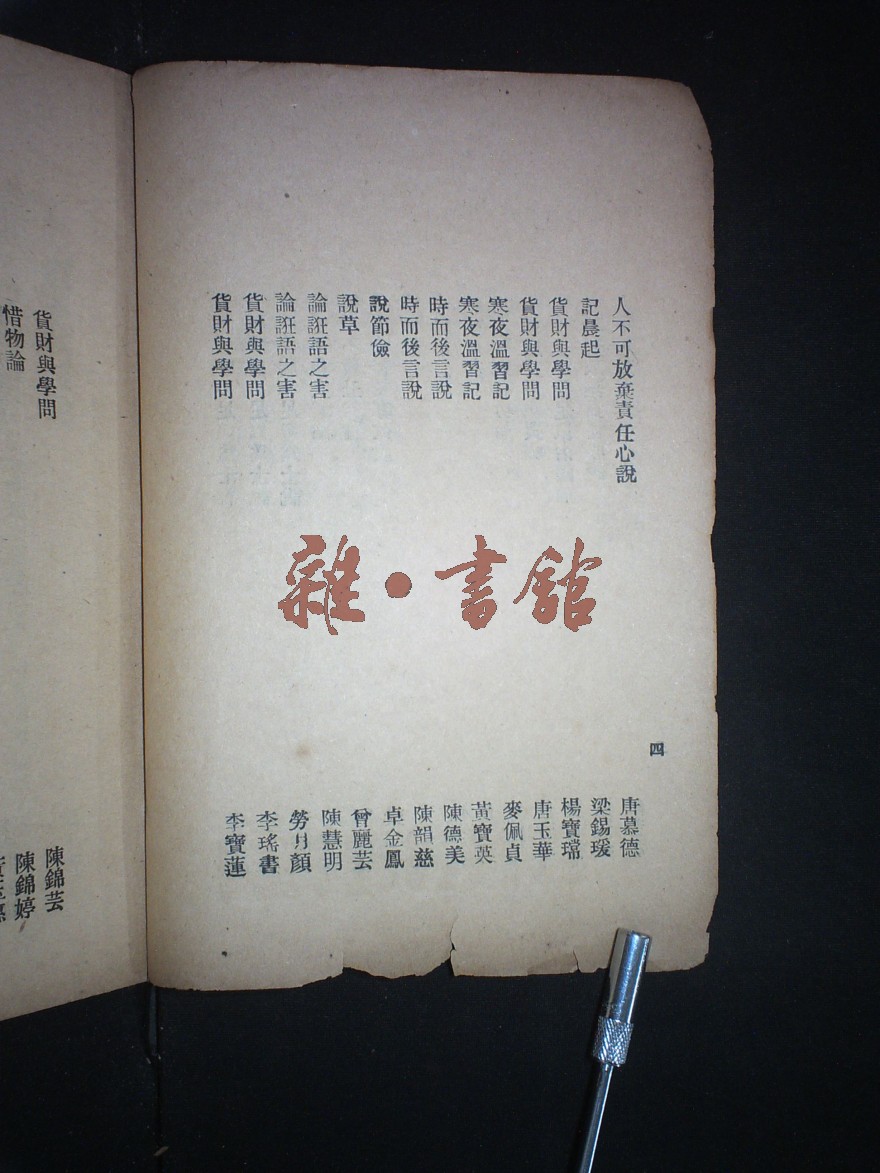 四
人不可放棄責任心說 唐慕德
記晨起 梁錫瑗
貨財與學問 楊寶瑺
貨財與學問 唐玉華
寒夜溫習記 麥佩貞
寒夜溫習記 黃寶英
時而後言說 陳德美
時而後言說 陳韻慈
說節儉 卓金鳳
說草 曾麗芸
論誑語之害 陳慧明
論誑語之害 勞月顏
貨財與學問 李瑤書
貨財與學問 李寶蓮
貨財與學問 陳錦芸
惜物論 陳錦婷
雜·書館